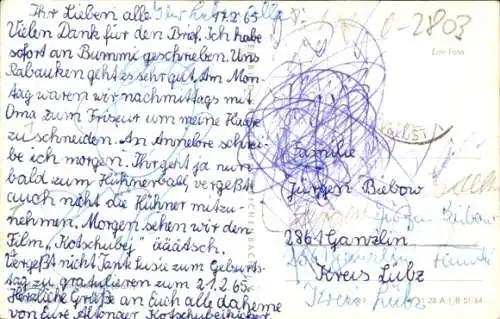 Ihr Lieben alle 17.2.65
Vielen Dank für den Brief. Ich habe
sofort an Bummi geschrieben. Uns
Rabauken geht es sehr gut. Am Mon-
tag waren wir nachmittags mit
Oma zum Friseur um meine Haare
zu schneiden. An Annelore schrei-
be ich morgen. Ihr geht ja nun
bald zum Hühnerball, vergeßt
auch nicht die Hühner mitzu-
nehmen. Morgen sehen wir den
Film „Kotschubey" ääätsch.
Vergeßt nicht Tante Susie zum Geburts-
tag zu gratulieren zum 21.2.65.
Herzliche Grüße an Euch alle daheme
von Eure
0-2803
Echt Foto
Familie
Jürgen Biebow
2861 Ganzlin
Kreis Lübz
Jürgen Biebow
Ganzlin
Kreis Lübz